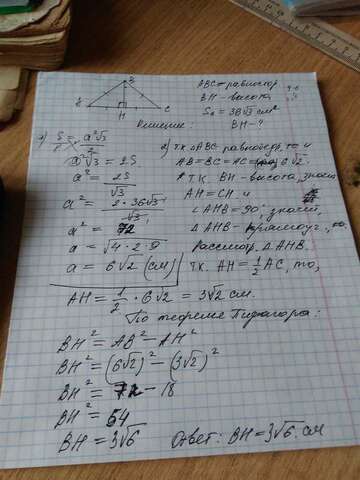 B
A H C
ABC - равностор
BH - высота
S△ = 38√3 см²
BH - ?
Решение:
1) S = a²√3
a²√3 = 2S
a² = 2S/√3
a² = 2·36√3/√3
a² = 72
a = √4·2·9
a = 6√2 (см)
2) тк △ABC равностор, то и
AB = BC = AC = 6√2.
тк. BH - высота, знач
AH = CH и
∠AHB = 90°, значит,
△AHB - прямоуг.
Рассмотр. △AHB.
тк. AH = 1/2 AC, то,
AH = 1/2 · 6√2 = 3√2 см.
По теореме Пифагора:
BH² = AB² - AH²
BH² = (6√2)² - (3√2)²
BH² = 72 - 18
BH² = 54
BH = 3√6
Ответ: BH = 3√6 см